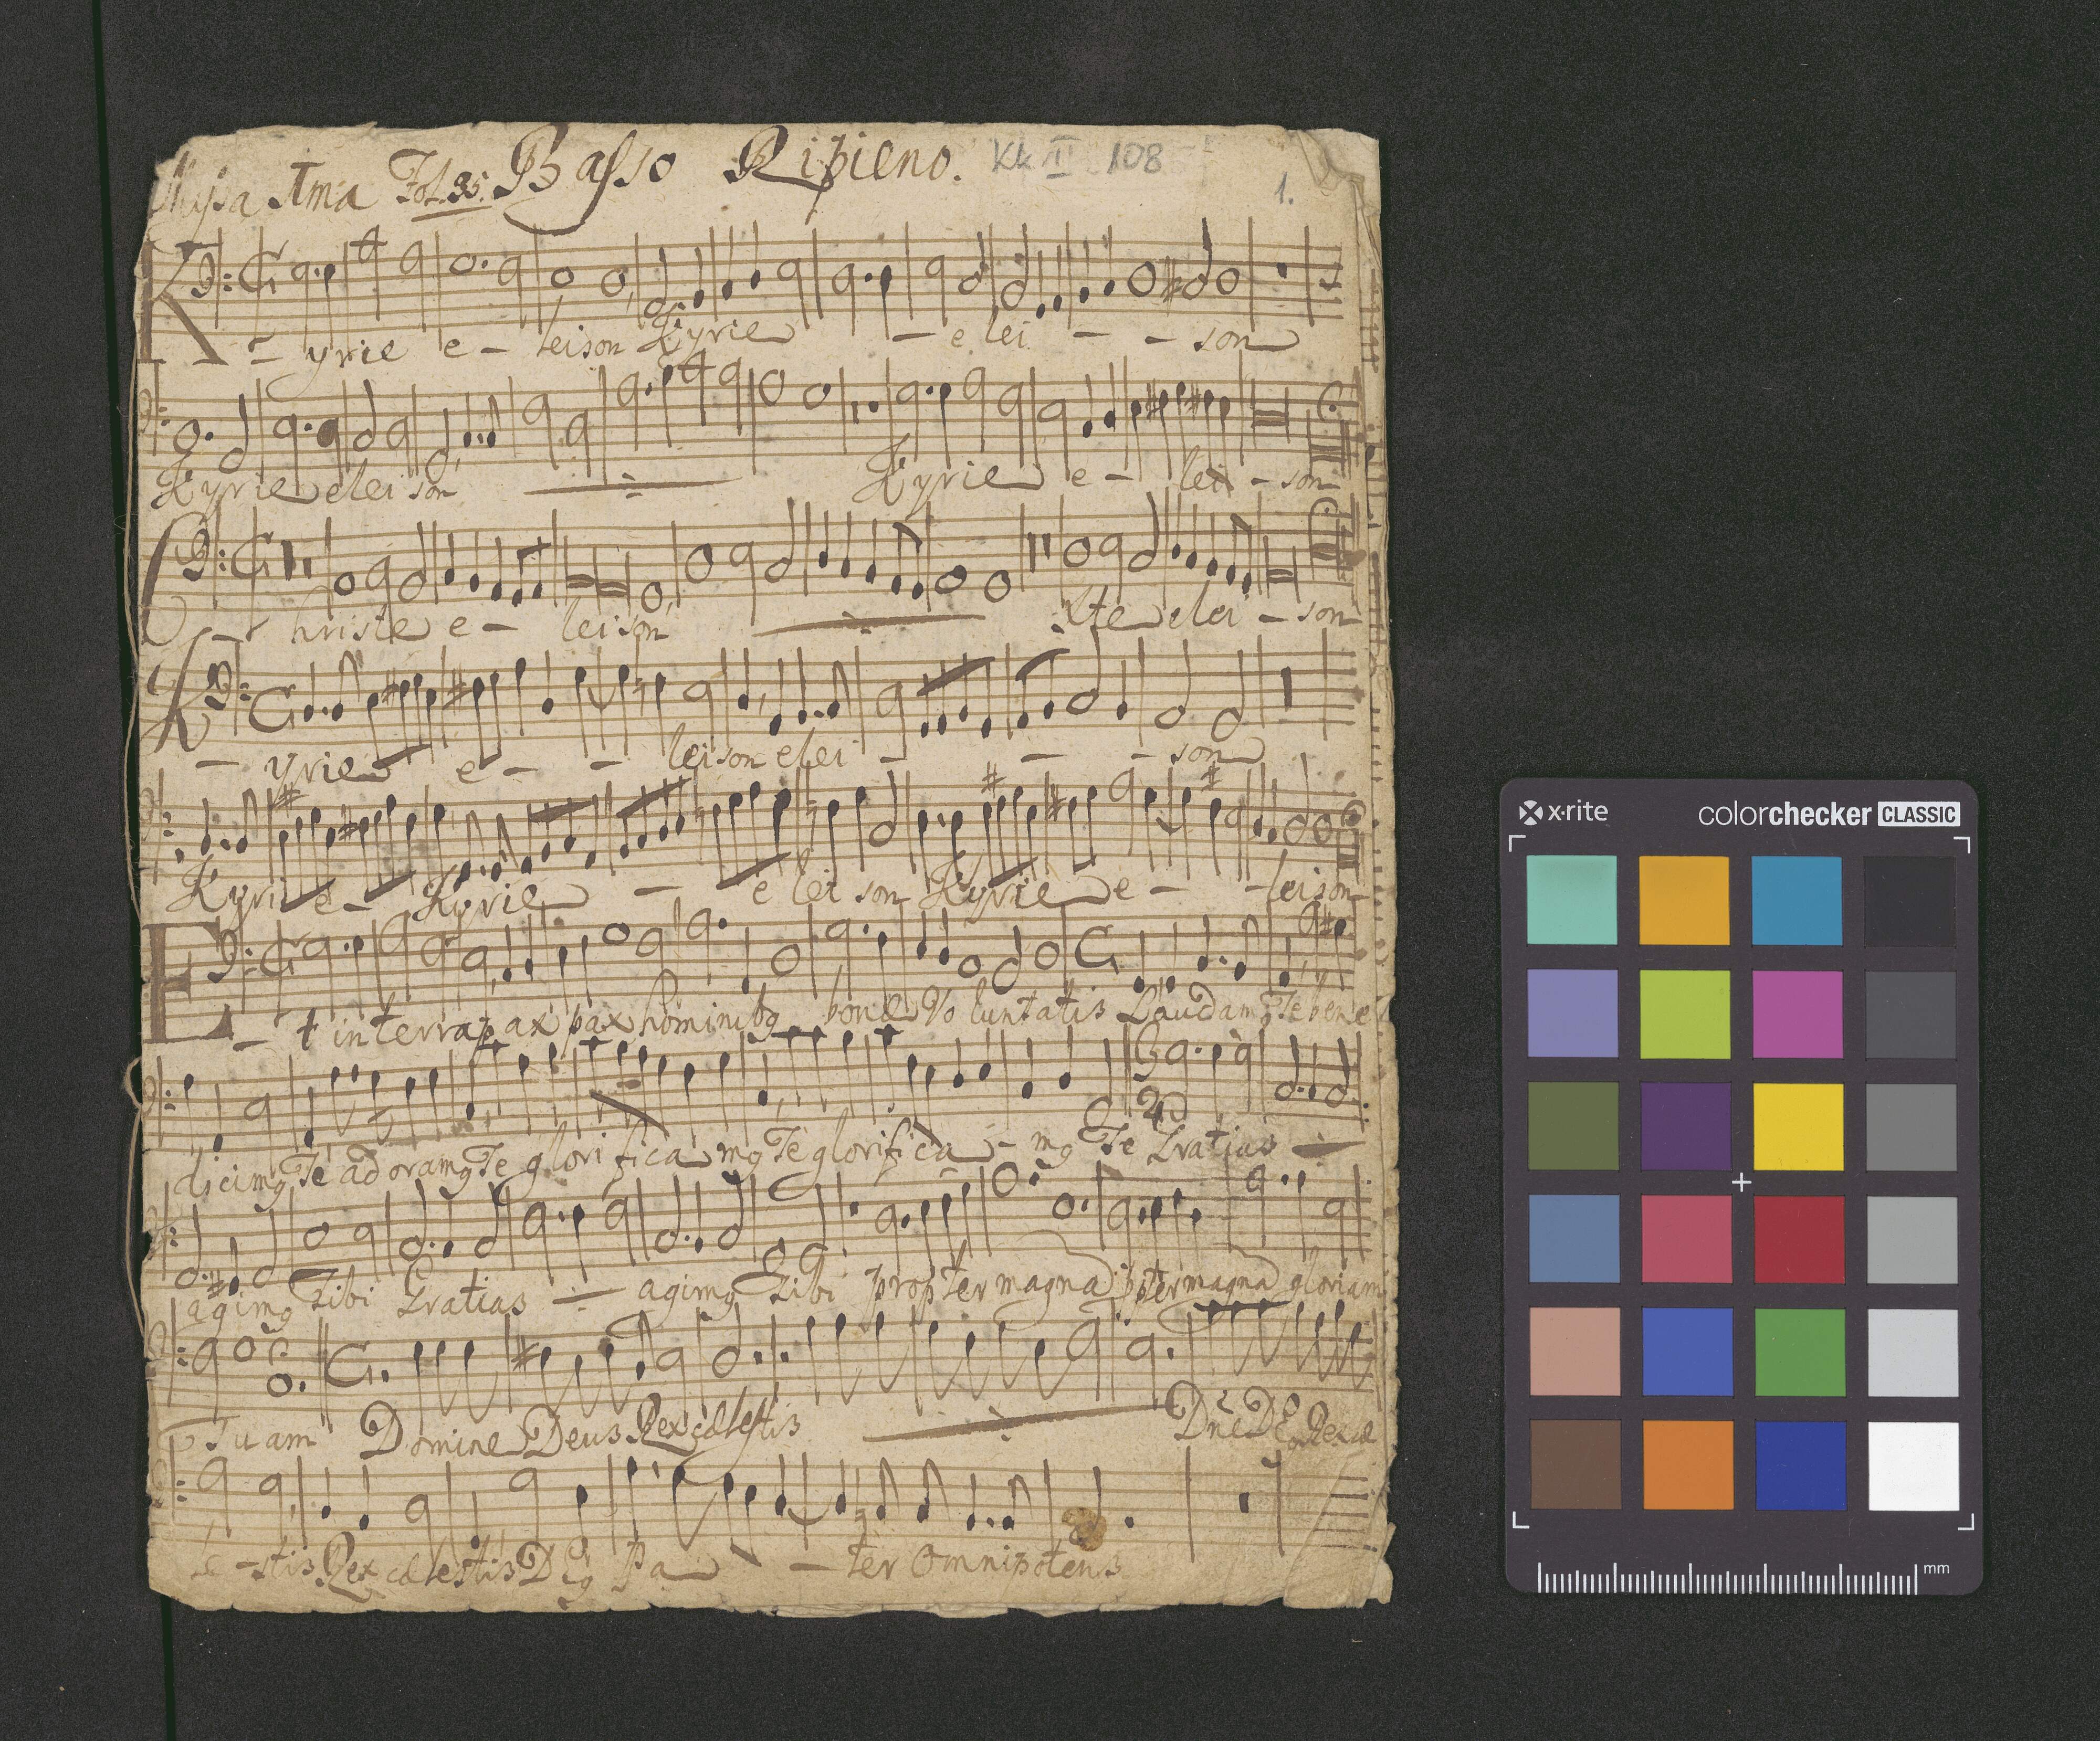 Missa Ima Fol. 35. Basso Ripieno. Kk II 108
1.
K - yrie e - leison Kyrie - e lei - - son
Kyrie elei son Kyrie e - lei - son
C - hriste e - lei son Xte elei - son
K - yrie e - - leison elei - - - son
Kyri e - Kyrie - e lei son Kyrie e - - leison
E - t in terra pax pax hominibꝫ bonæ Vo luntatis Laudamꝫ Te bene
dicimꝫ Te adoramꝫ Te glori fica mꝫ Te glorifica - mꝫ Te Gratias
agimꝫ Tibi Gratias agimꝫ Tibi propter magna ppter magna gloriam
Tuam Domine Deus Rex cælestis Dne Rex cæ
le - stis Rex cælestis Pa - ter Omnipotens
x·rite colorchecker CLASSIC
mm